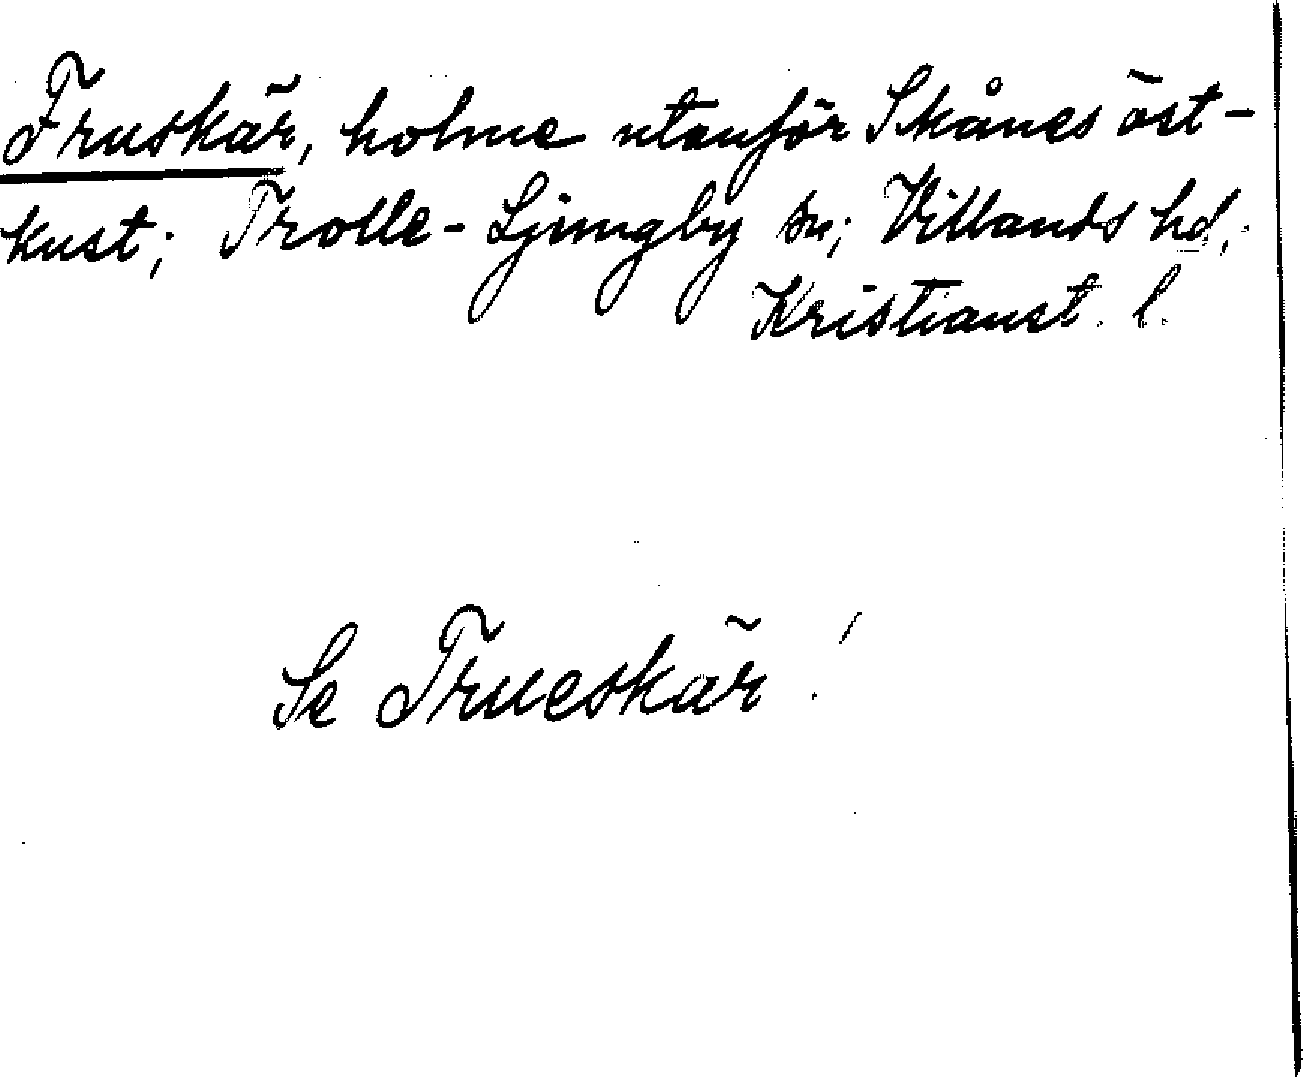 Fruskär, holme utanför Skånes öst-
kust; Trolle-Ljungby sn; Villands hd,
Kristianst. l.
Se Trueskär!